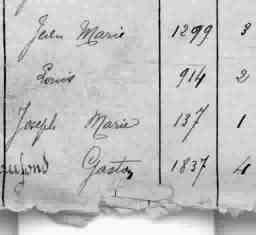 Jean Marie 1299 3
Louis 914 2
Joseph Marie 137 1
Gaston 1837 4